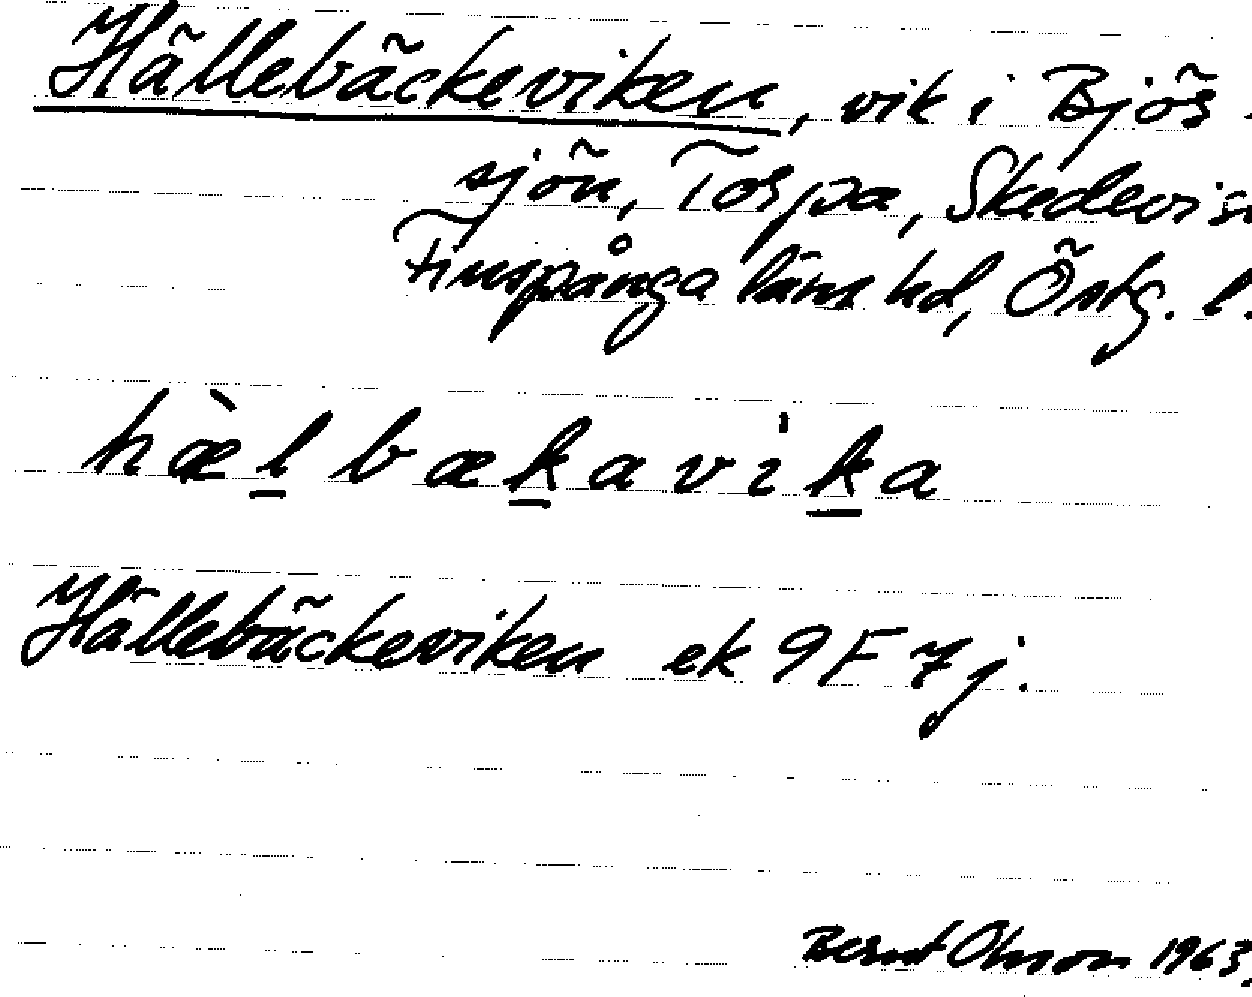 Hällebäckeviken, vik i Björ-
sjön, Torpa, Skedevi s
Finspånga läns hd, Östg. l.
hæ̀l bækavika
Hällebäckeviken ek 9F7j.
Bernt Olsson 1963.